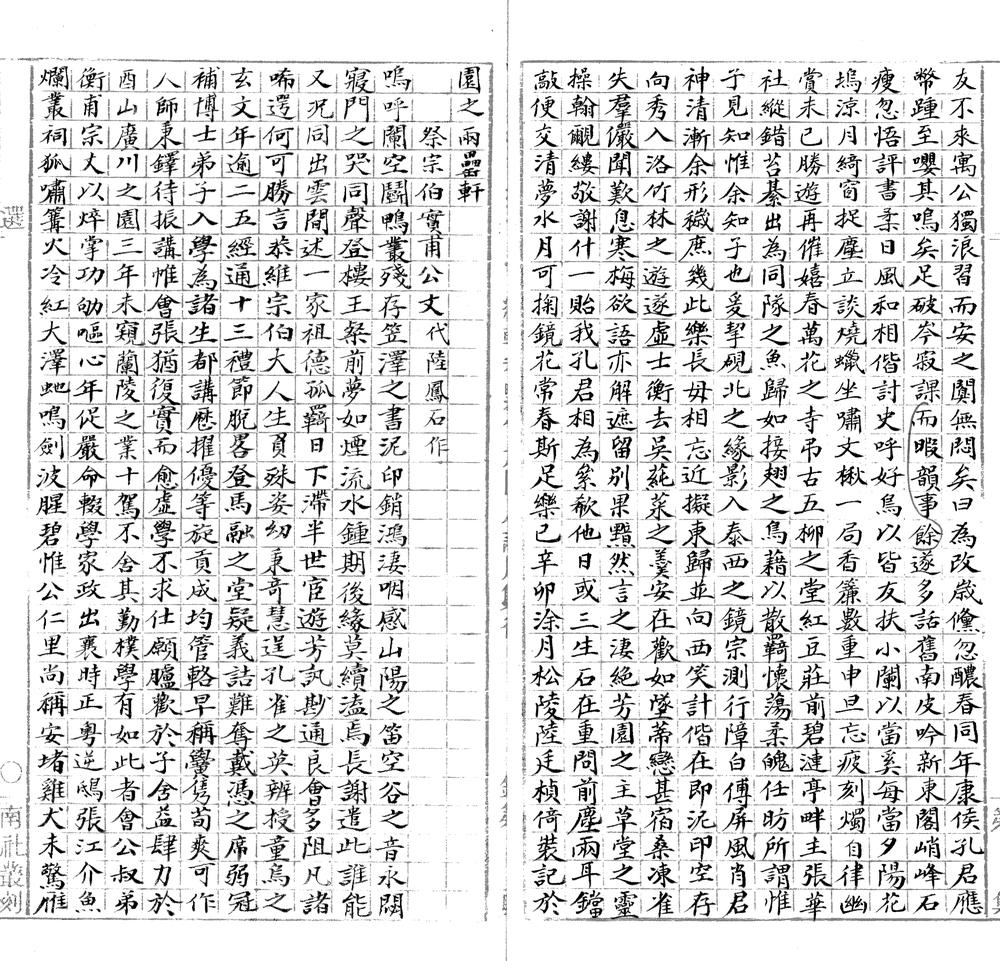 友不來寓公獨浪習而安之闃無悶矣曰為改歲儻忽醲春同年康侯孔君應
幣踵至嚶其鳴矣足破岑寂課而暇韻事餘遂多話舊南皮吟新東閣峭峰石
瘦忽悟評書柔日風和相偕討史呼好鳥以皆友扶小闌以當奚每當夕陽花
塢涼月綺窗捉麈立談燒蠟坐嘯文楸一局香簾數重申旦忘疲刻燭自律幽
賞未已勝遊再催嬉春萬花之寺弔古五柳之堂紅豆莊前碧漣亭畔主張華
社縱錯苔綦出為同隊之魚歸如接翅之鳥藉以散羈懷蕩柔魄任昉所謂惟
子見知惟余知子也爰挈硯北之緣影入泰西之鏡宗測行障白傅屏風肖君
神清漸余形穢庶幾此樂長毋相忘近擬東歸並向西笑計偕在即泥印空存
向秀入洛竹林之遊遂虛士衡去吳蓴菜之羹安在歡如墜蒂戀甚宿桑凍雀
失羣儼聞歎息寒梅欲語亦解遮留別果黯然言之淒絕芳園之主草堂之靈
操翰覼縷敬謝什一貽我孔君相為紮欷他日或三生石在重問前塵兩耳鐺
敲便交清夢水月可掬鏡花常春斯足樂已辛卯涂月松陵陸廷楨倚裝記於
園之兩罍軒
祭宗伯實甫公文代陸鳳石作
嗚呼闌空鬬鴨叢殘存笠澤之書泥印銷鴻淒咽感山陽之笛空谷之音永閟
寢門之哭同聲登樓王粲前夢如煙流水鍾期後緣莫續溘焉長謝遣此誰能
又況同出雲間述一家祖德孤羈日下滯半世官遊芳訊尠通良會多阻凡諸
唏遻何可勝言恭維宗伯大人生負殊姿幼秉奇慧逞孔雀之英辨授童烏之
玄文年逾二五經通十三禮節脫畧登馬融之堂疑義詰難奪戴憑之席弱冠
補博士弟子入學為諸生都講歷擢優等旋貢成均管輅早稱黌雋荀爽可作
人師秉鐸待振講惟會張猶復實而愈虛學不求仕願臚歡於子舍益肆力於
酉山廣川之園三年未窺蘭陵之業十駕不舍其勤樸學有如此者會公叔弟
衡甫宗丈以焠掌功劬嘔心年促嚴命輟學家政出襄時正粵逆鴟張江介魚
爛叢祠狐嘯篝火冷紅大澤虵鳴劍波腥碧惟公仁里尚稱安堵雞犬未驚雁
選
南社叢刻